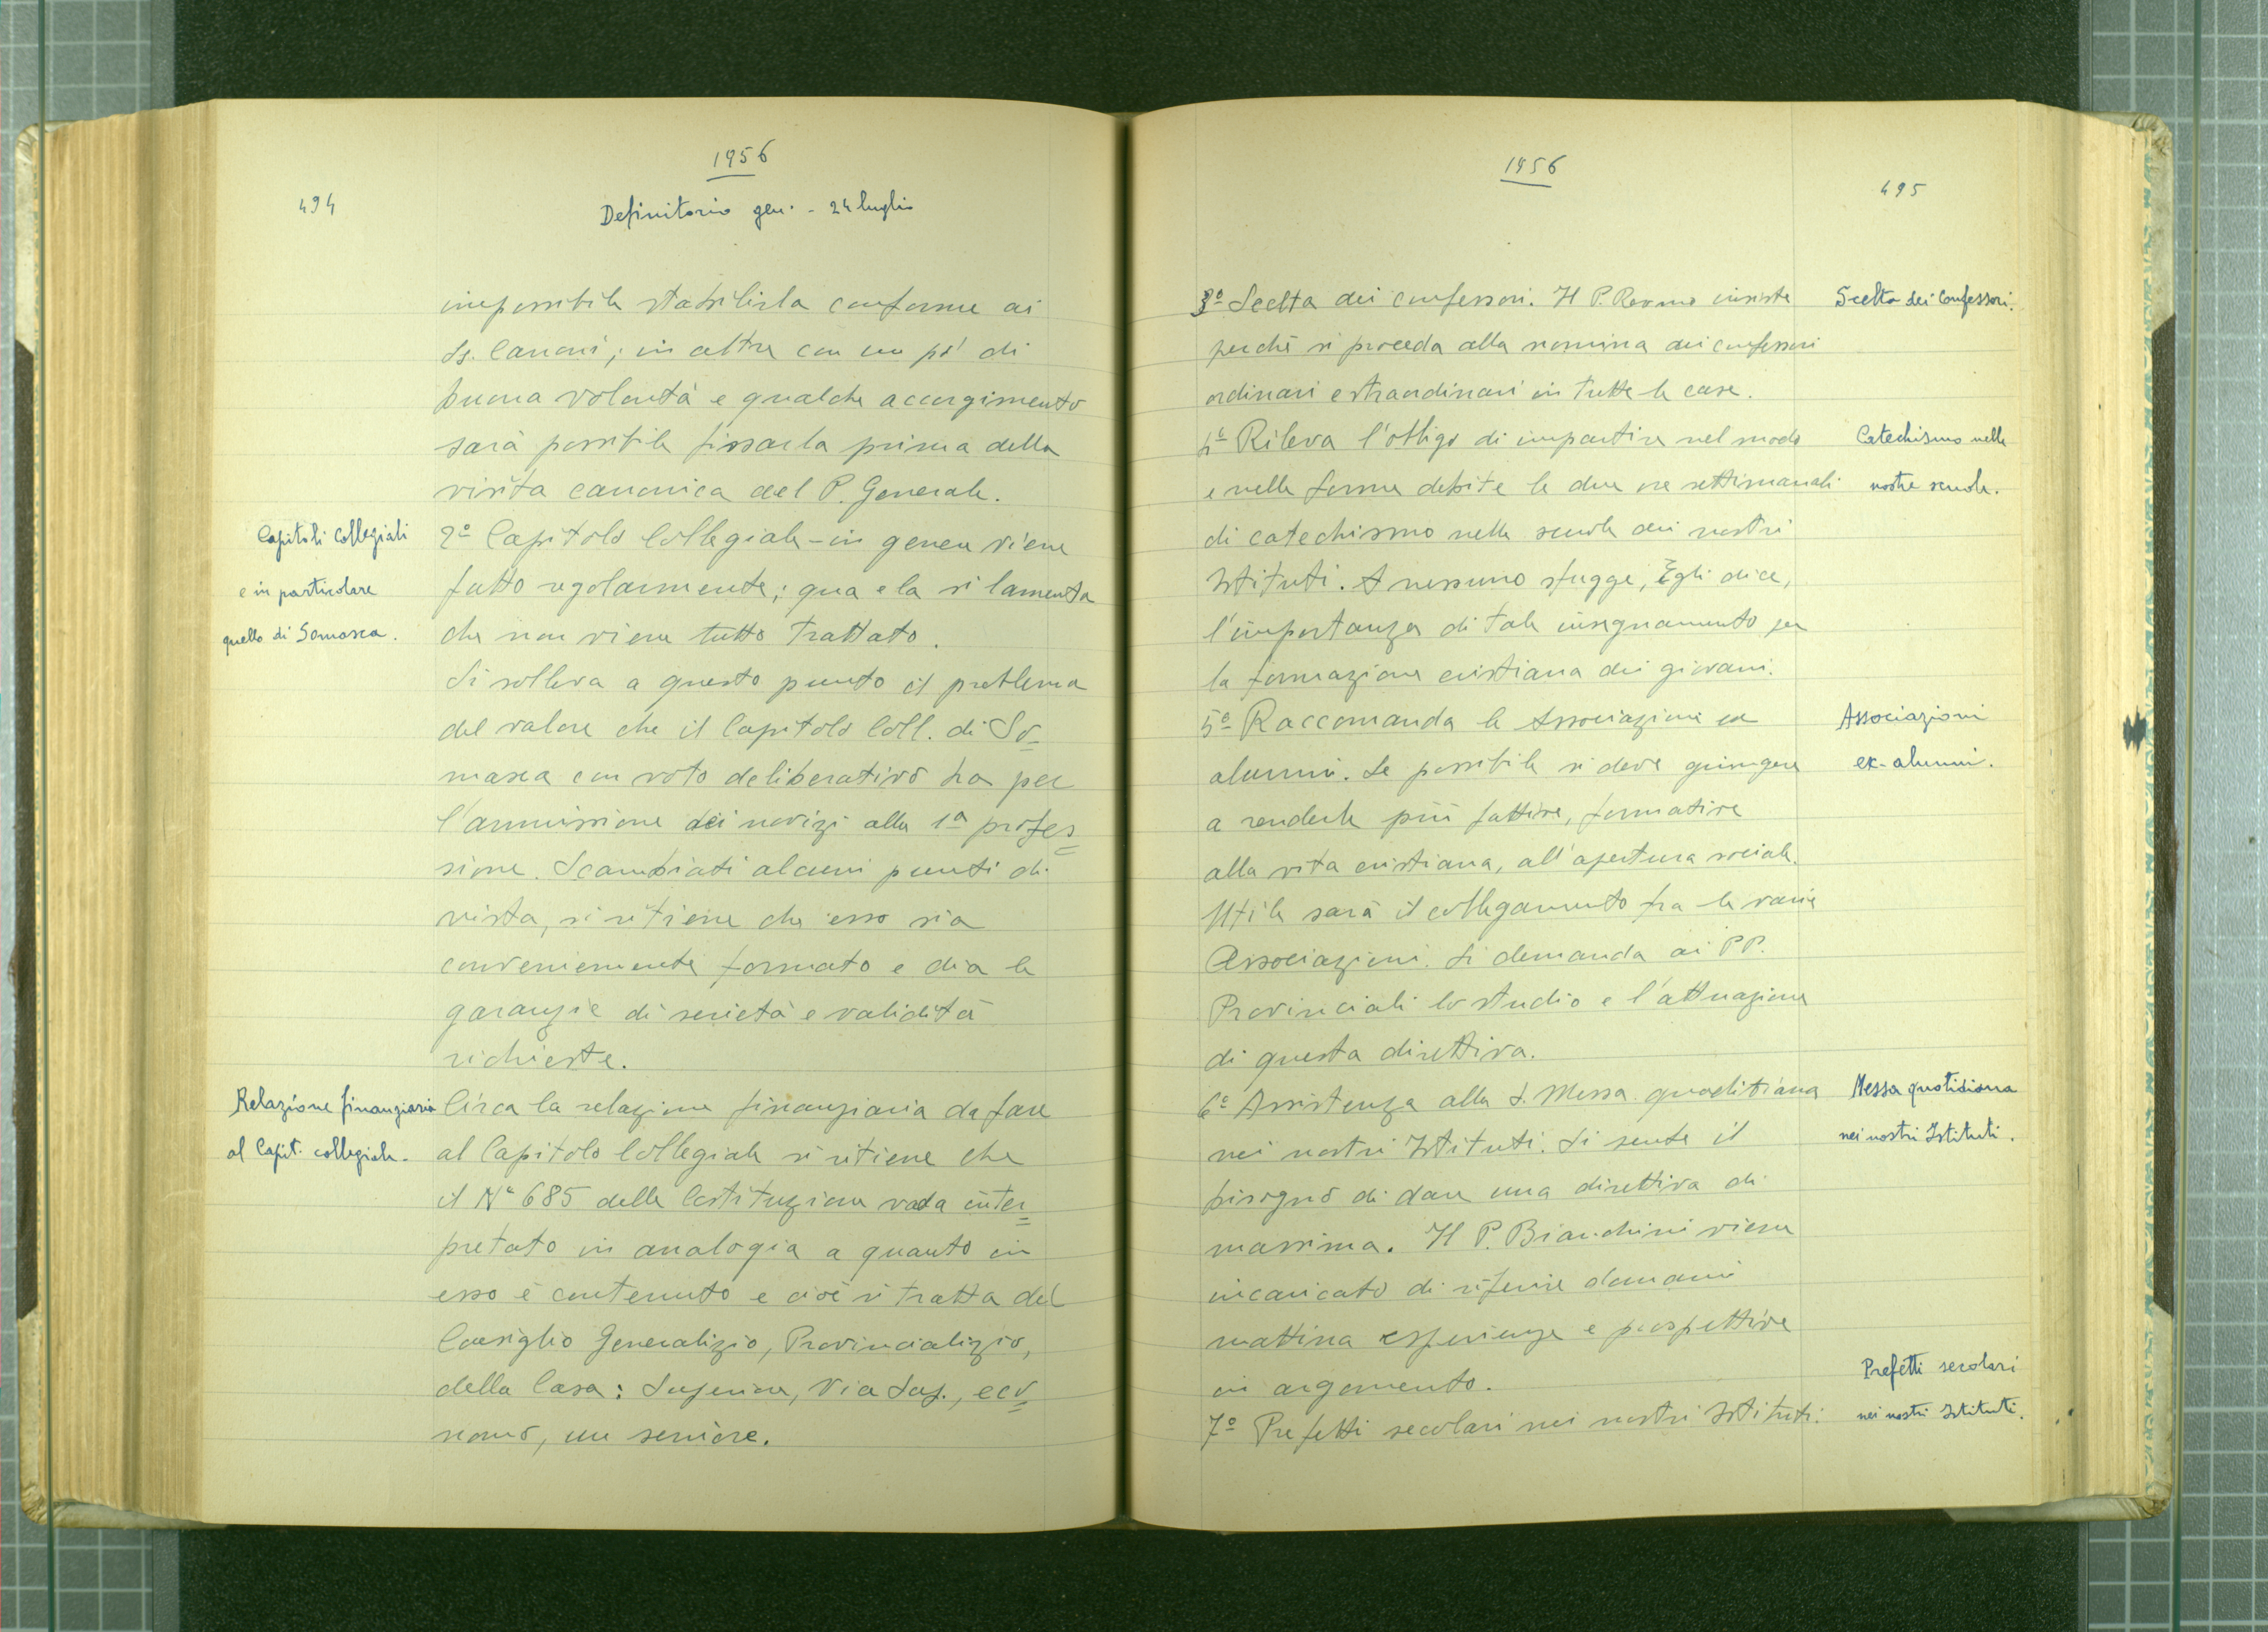 1956
494
Definitorio gen. - 24 luglio
impossibile stabilirla conforme ai
Ss. Canoni; in altre con un po' di
buona volontà e qualche accorgimento
sarà possibile fissarla prima della
visita canonica del P. Generale.
Capitoli Collegiali
e in particolare
quello di Somasca.
2º Capitolo Collegiale - in genere viene
fatto regolarmente; qua e la si lamenta
che non viene tutto trattato.
Si solleva a questo punto il problema
del valore che il Capitolo Coll. di So=
masca con voto deliberativo ha per
l'ammissione dei novizi alla 1ª profes=
sione. Scambiati alcuni punti di
vista, si ritiene che esso sia
convenientemente formato e dia le
garanzie di serietà e validità
richieste.
Relazione finanziaria
al Capit. collegiale.
Circa la relazione finanziaria da fare
al Capitolo Collegiale si ritiene che
il Nº 685 delle Costituzioni vada inter=
pretato in analogia a quanto in
esso è contenuto e cioè si tratta del
Consiglio Generalizio, Provincializio,
della Casa: Superiore, Vice Sup., eco=
nomo, un seniore.
1956
495
3º Scelta dei confessori. Il P. Rev.mo insiste
perchè si proceda alla nomina dei confessori
ordinari e straordinari in tutte le case.
Scelta dei Confessori.
4º Rileva l'obbligo di impartire nel modo
e nelle forme debite le due ore settimanali
di catechismo nelle scuole dei nostri
Istituti. A nessuno sfugge, Egli dice,
l'importanza di tale insegnamento per
la formazione cristiana dei giovani.
Catechismo nelle
nostre scuole.
5º Raccomanda le Associazioni ex
alunni. Se possibile si deve giungere
a renderle più fattive, formative
alla vita cristiana, all'apertura sociale.
Utile sarà il collegamento fra le varie
Associazioni. Si demanda ai PP.
Provinciali lo studio e l'attuazione
di questa direttiva.
Associazioni
ex-alunni.
6º Assistenza alla S. Messa quotidiana
nei nostri Istituti. Si sente il
bisogno di dare una direttiva di
massima. Il P. Bianchini viene
incaricato di riferire domani
mattina esperienze e prospettive
in argomento.
Messa quotidiana
nei nostri Istituti.
7º Prefetti secolari nei nostri Istituti:
Prefetti secolari
nei nostri Istituti.